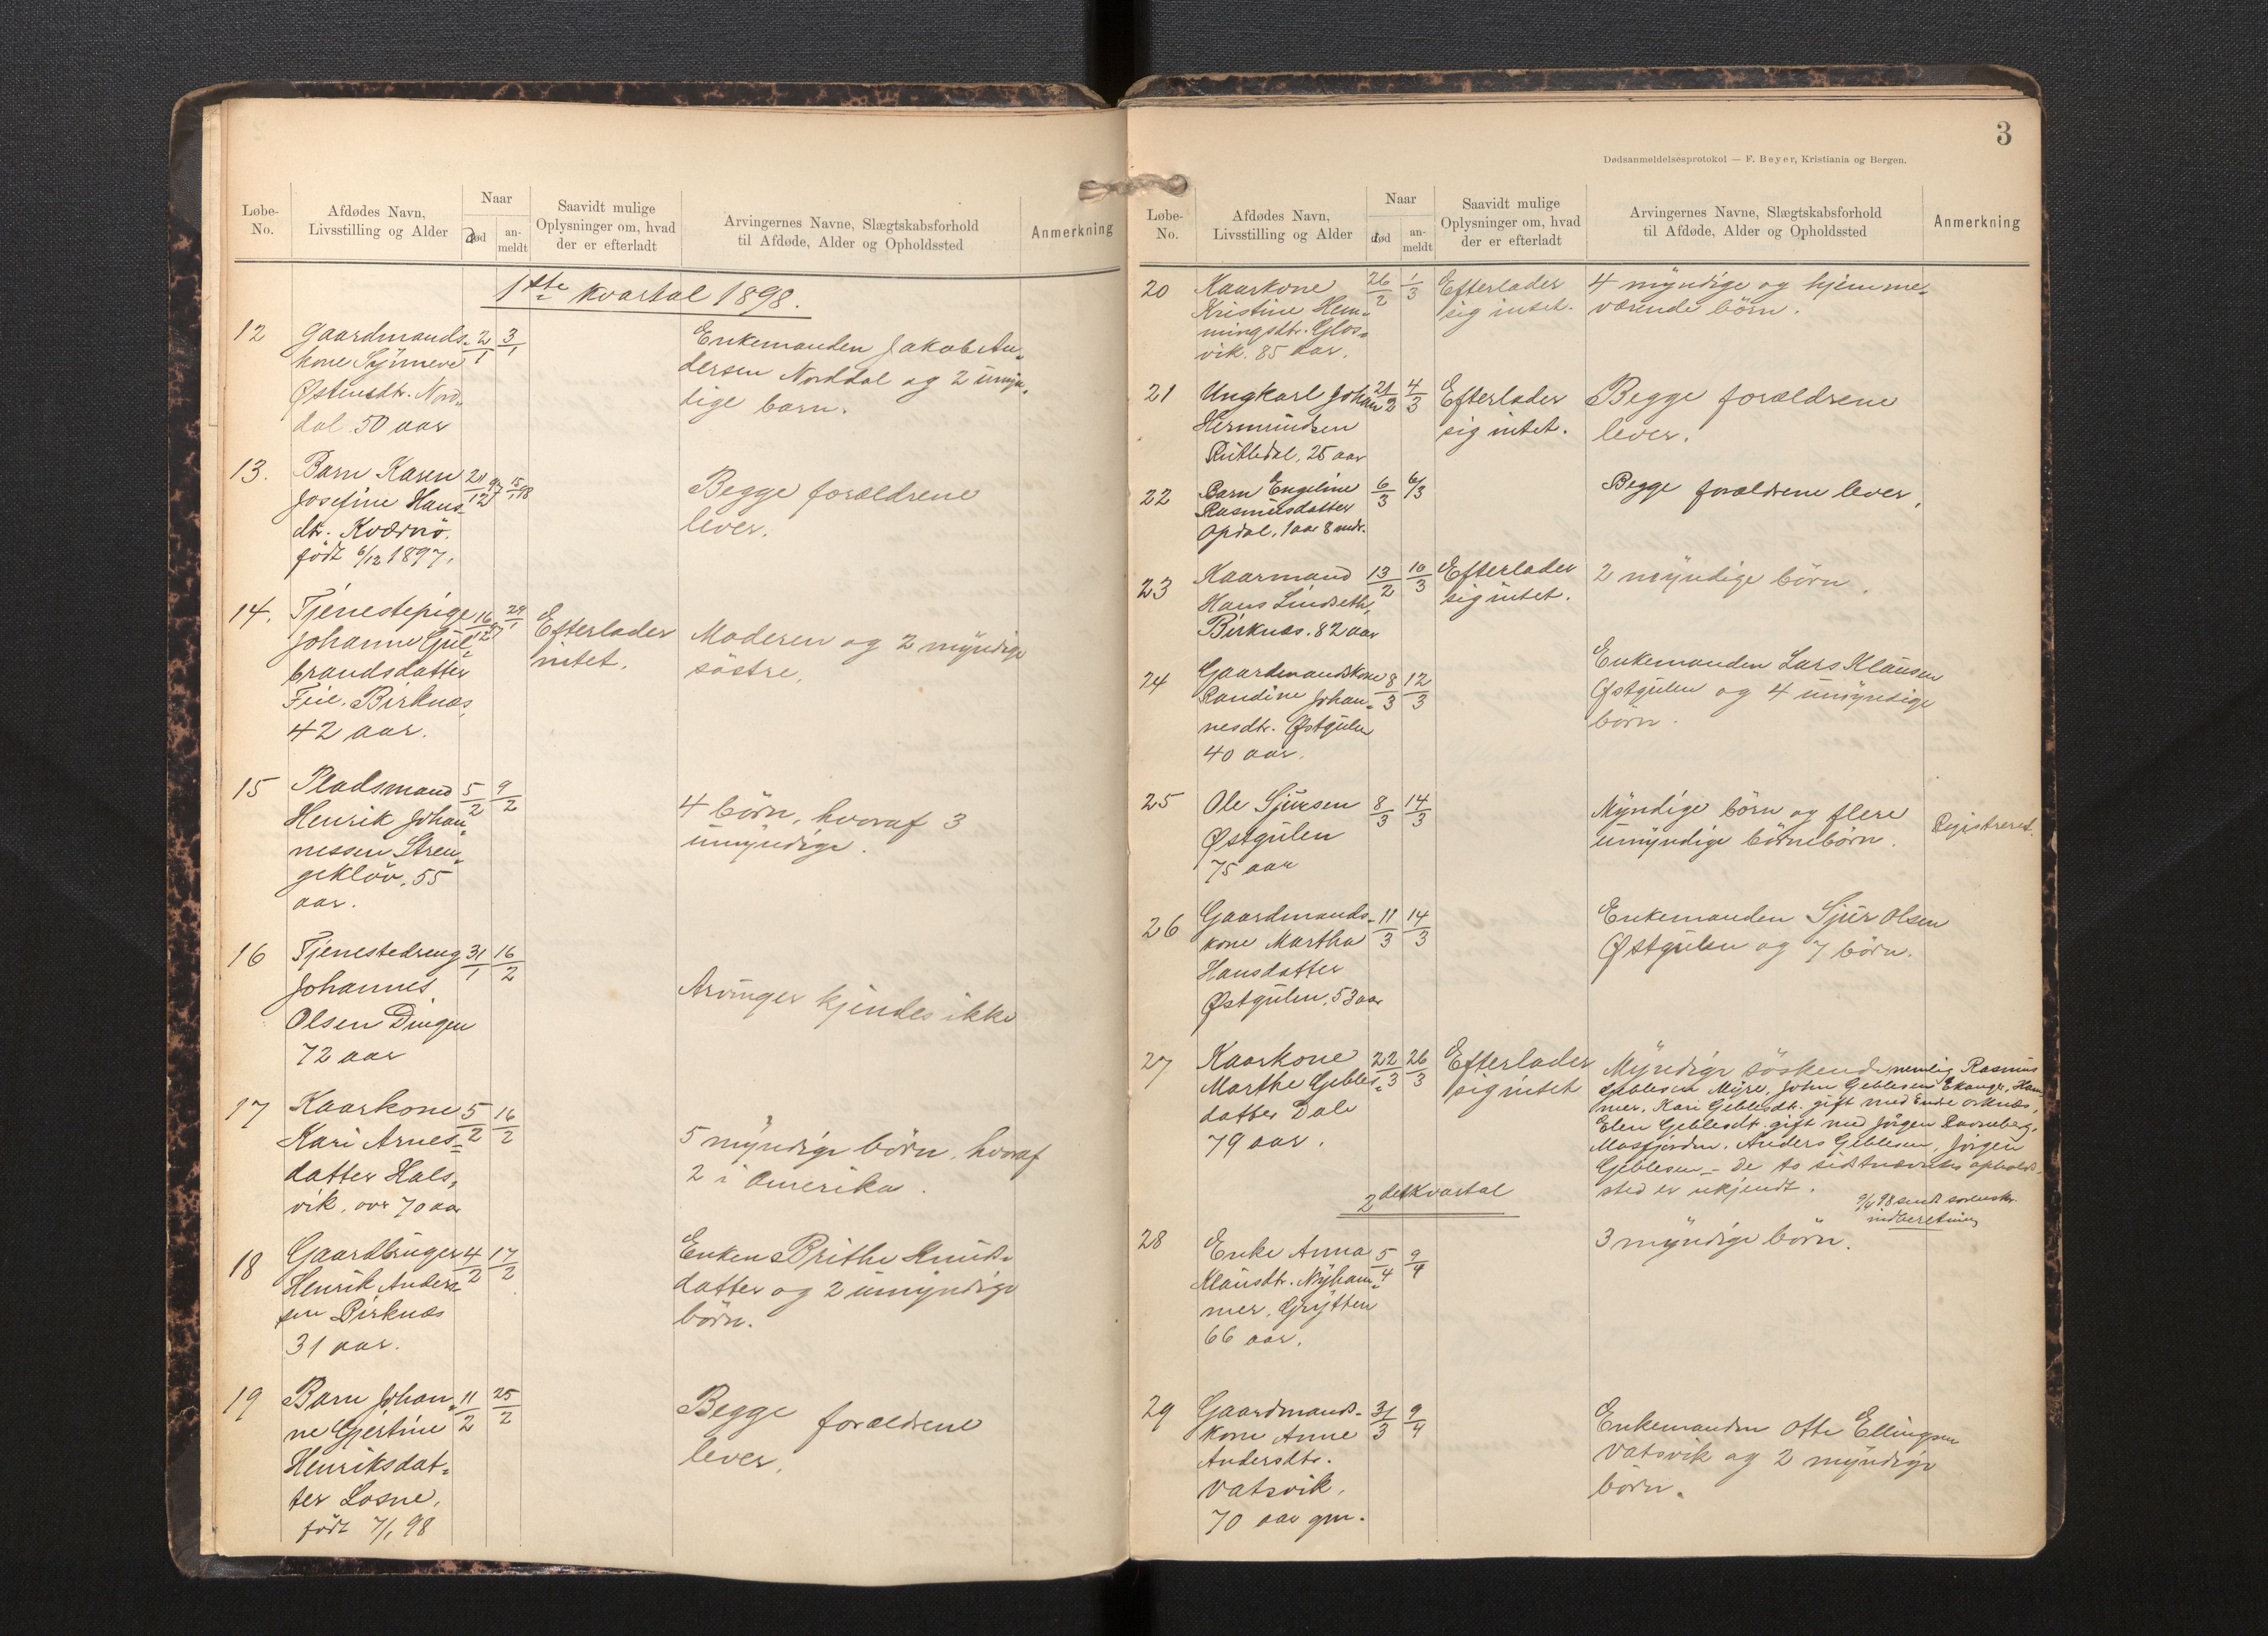 Løbe-No.
Afdødes Navn, Livsstilling og Alder
Naar
død
an-meldt
Saavidt mulige Oplysninger om, hvad der er efterladt
Arvingernes Navne, Slægtskabsforhold til Afdøde, Alder og Opholdssted
Anmerkning
1ste kvartal 1898.
12
Gaardmands-
kone Synneve
Østensdtr. Nord-
dal 50 aar
2/1
3/1
Enkemanden Jakob An-
dersen Norddal og 2 umyn-
dige barn.
13.
Barn Karen
Josefine Hans-
dtr. Kværnø.
født 6/12 1897.
21/12 97
15/1 98
Begge forældrene
lever.
14.
Tjenestepige
Johanne Gul-
brandsdatter
Feie, Birknæs,
42 aar.
16/12 97
29/1
Efterlader
intet.
Moderen og 2 myndige
söstre.
15
Pladsmand
Henrik Johan-
nessen Stren-
geklöv, 55
aar.
5/2
9/2
4 börn, hvoraf 3
umyndige.
16
Tjenestedreng
Johannes
Olsen Dingen
72 aar
31/1
16/2
Arvinger kjendes ikke
17
Kaarkone
Kari Arnes-
datter Hals-
vik, over 70 aar
5/2
16/2
5 myndige börn, hvoraf
2 i Amerika.
18
Gaardbruger
Henrik Ander-
sen Birknæs
31 aar.
4/2
17/2
Enken Brithe Knuds-
datter og 2 umyndige
börn.
19
Barn Johan-
ne Gjertine
Henriksdat-
ter Losne,
født 7/1 98
11/2
25/2
Begge forældrene
lever.
3
Dødsanmeldelsesprotokol — F. Beyer, Kristiania og Bergen.
Løbe-No.
Afdødes Navn, Livsstilling og Alder
Naar
død
an-meldt
Saavidt mulige Oplysninger om, hvad der er efterladt
Arvingernes Navne, Slægtskabsforhold til Afdøde, Alder og Opholdssted
Anmerkning
20
Kaarkone
Kristine Hem-
mingsdtr. Glos-
vik. 85 aar.
26/2
1/3
Efterlader
sig intet.
4 myndige og hjemme-
værende börn.
21
Ungkarl Johan
Hermundsen
Rutledal, 25 aar
21/2
4/3
Efterlader
sig intet.
Begge forældrene
lever.
22
Barn Engeline
Rasmusdatter
Opdal, 1 aar 8 mdr.
6/3
6/3
Begge forældrene lever.
23
Kaarmand
Hans Lindseth,
Birknæs. 82 aar
13/2
10/3
Efterlader
sig intet.
2 myndige börn.
24
Gaardmandskone
Randine Johan-
nesdtr. Østgulen
40 aar.
8/3
12/3
Enkemanden Lars Klausen
Østgulen og 4 umyndige
börn.
25
Ole Sjursen
Østgulen
75 aar
8/3
14/3
Myndige börn og flere
umyndige börnebörn.
Registreret.
26
Gaardmands-
kone Martha
Hansdatter
Østgulen, 53 aar
11/3
14/3
Enkemanden Sjur Olsen
Østgulen og 7 börn.
27
Kaarkone
Marthe Gebles-
datter Dale
79 aar.
22/3
26/3
Efterlader
sig intet
Myndige söskende nemlig Rasmus
Geblesen Myre, John Geblesen Ekanger, Ham-
mer, Kari Geblesdtr. gift med Endre
Elen Geblesdtr. gift med Jörgen
Masfjorden, Anders Geblesen, Jörgen
Geblesen – De to sidstnævntes opholds-
sted er ukjendt.
9/4 98 sendt sorenskr.
indberetning
2det kvartal
28
Enke Anna
Klausdtr. Nyham-
mer, Grytten
66 aar.
5/4
9/4
3 myndige börn.
29
Gaardmands-
kone Anne
Andersdtr.
Vatsvik,
70 aar gm.
31/3
9/4
Enkemanden Otte Ellingsen
Vatsvik og 2 myndige
börn.